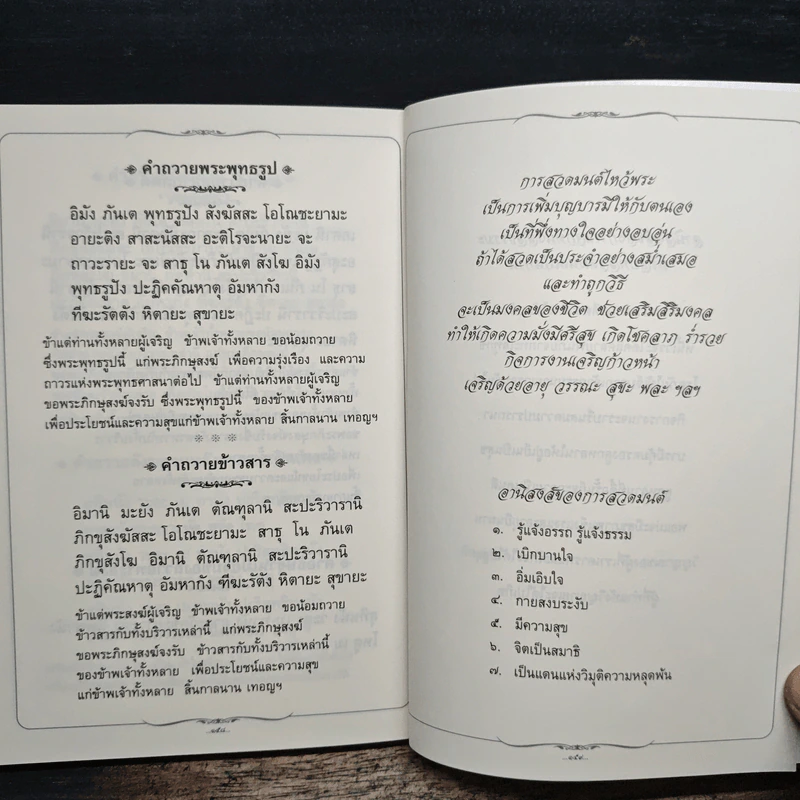 คำถวายพระพุทธรูป
อิมัง ภันเต พุทธรูปัง สังฆัสสะ โอโณชะยามะ
อายะติง สาสะนัสสะ อะติโรจะนายะ จะ
ถาวะรายะ จะ สาธุ โน ภันเต สังโฆ อิมัง
พุทธรูปัง ปะฏิคคัณหาตุ อัมหากัง
ทีฆะรัตตัง หิตายะ สุขายะ
ข้าแต่ท่านทั้งหลายผู้เจริญ ข้าพเจ้าทั้งหลาย ขอน้อมถวาย
ซึ่งพระพุทธรูปนี้ แก่พระภิกษุสงฆ์ เพื่อความรุ่งเรือง และความ
ถาวรแห่งพระพุทธศาสนาต่อไป ข้าแต่ท่านทั้งหลายผู้เจริญ
ขอพระภิกษุสงฆ์จงรับ ซึ่งพระพุทธรูปนี้ ของข้าพเจ้าทั้งหลาย
เพื่อประโยชน์และความสุขแก่ข้าพเจ้าทั้งหลาย สิ้นกาลนาน เทอญฯ
คำถวายข้าวสาร
อิมานิ มะยัง ภันเต ตัณฑุลานิ สะปะริวารานิ
ภิกขุสังฆัสสะ โอโณชะยามะ สาธุ โน ภันเต
ภิกขุสังโฆ อิมานิ ตัณฑุลานิ สะปะริวารานิ
ปะฏิคัณหาตุ อัมหากัง ฑีฆะรัตัง หิตายะ สุขายะ
ข้าแต่พระสงฆ์ผู้เจริญ ข้าพเจ้าทั้งหลาย ขอน้อมถวาย
ข้าวสารกับทั้งบริวารเหล่านี้ แก่พระภิกษุสงฆ์
ขอพระภิกษุสงฆ์จงรับ ข้าวสารกับทั้งบริวารเหล่านี้
ของข้าพเจ้าทั้งหลาย เพื่อประโยชน์และความสุข
แก่ข้าพเจ้าทั้งหลาย สิ้นกาลนาน เทอญฯ
๑๕๘
การสวดมนต์ไหว้พระ
เป็นการเพิ่มบุญบารมีให้กับตนเอง
เป็นที่พึ่งทางใจอย่างอบอุ่น
ถ้าได้สวดเป็นประจำอย่างสม่ำเสมอ
และทำถูกวิธี
จะเป็นมงคลของชีวิต ช่วยเสริมสิริมงคล
ทำให้เกิดความมั่งมีศรีสุข เกิดโชคลาภ ร่ำรวย
กิจการงานเจริญก้าวหน้า
เจริญด้วยอายุ วรรณะ สุขะ พละ ฯลฯ
อานิสงส์ของการสวดมนต์
๑. รู้แจ้งอรรถ รู้แจ้งธรรม
๒. เบิกบานใจ
๓. อิ่มเอิบใจ
๔. กายสงบระงับ
๕. มีความสุข
๖. จิตเป็นสมาธิ
๗. เป็นแดนแห่งวิมุติความหลุดพ้น
๑๕๙